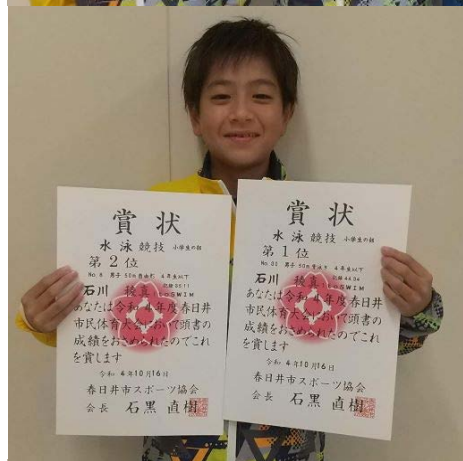 賞状
水泳競技 小学生の部
第2位
No 8 男子 50m 自由形 4年生以下
石川
SWIM
あなたは令和 年度春日井
市民体育大会において頭書の
成績をおさめられたのでこれ
を賞します
令和 4年10月16日
春日井市スポーツ協会
会長 石黒 直樹
賞状
水泳競技 小学生の部
第1位
男子 50m 4年生以下
石川
SWIM
あなたは令和 年度春日井
市民体育大会において頭書の
成績をおさめられたのでこれ
を賞します
令和 4年10月16日
春日井市スポーツ協会
会長 石黒 直樹